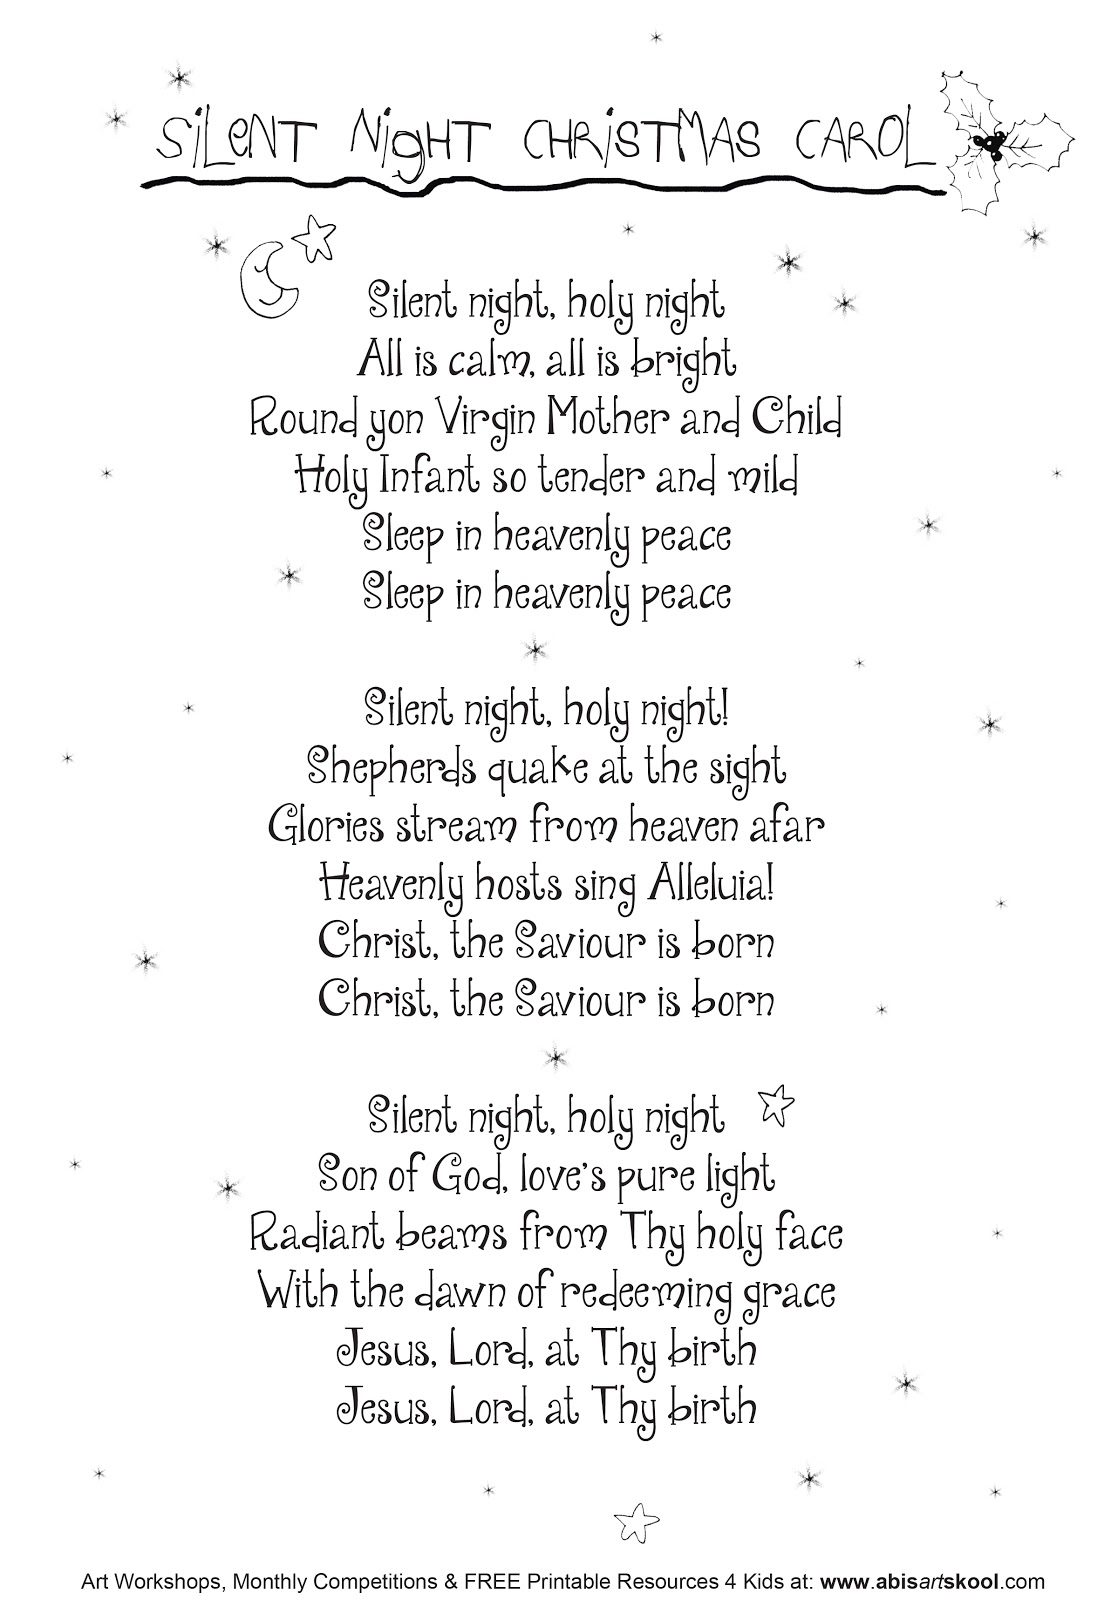 SiLeNT NigHT CHRiSTMAS CAROL
Silent night, holy night
All is calm, all is bright
Round yon Virgin Mother and Child
Holy Infant so tender and mild
Sleep in heavenly peace
Sleep in heavenly peace
Silent night, holy night!
Shepherds quake at the sight
Glories stream from heaven afar
Heavenly hosts sing Alleluia!
Christ, the Saviour is born
Christ, the Saviour is born
Silent night, holy night
Son of God, love's pure light
Radiant beams from Thy holy face
With the dawn of redeeming grace
Jesus, Lord, at Thy birth
Jesus, Lord, at Thy birth
Art Workshops, Monthly Competitions & FREE Printable Resources 4 Kids at: www.abisartskool.com